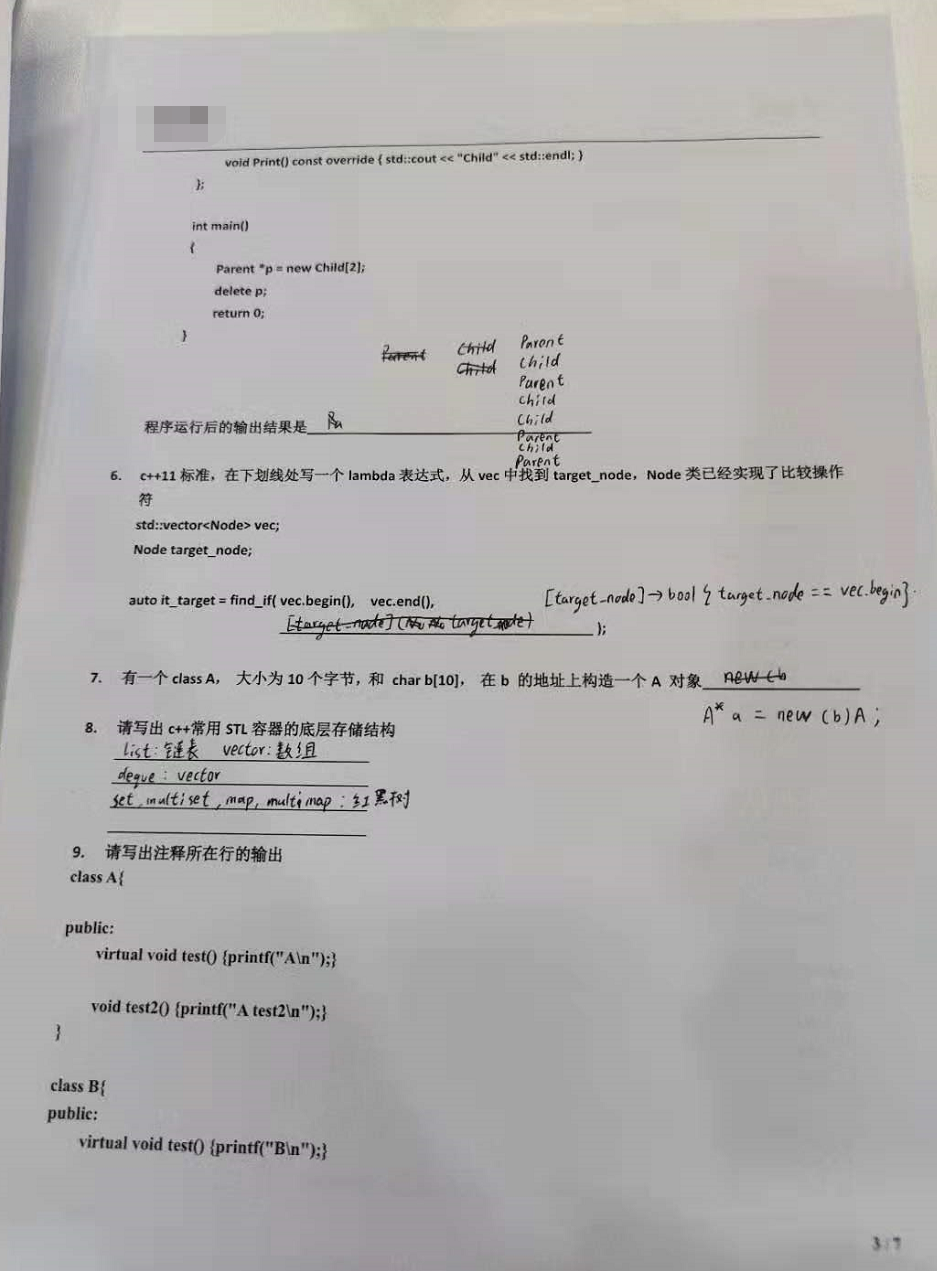 void Print() const override { std::cout << "Child" << std::endl; }
};
int main()
{
Parent *p = new Child[2];
delete p;
return 0;
}
Parent Child Paront
Child Child
Parent
Child
程序运行后的输出结果是 Pa Child
Parent
Child
Parent
6. c++11 标准，在下划线处写一个 lambda 表达式，从 vec 中找到 target_node，Node 类已经实现了比较操作
符
std::vector<Node> vec;
Node target_node;
auto it_target = find_if( vec.begin(), vec.end(), [target_node]→bool { target_node == vec.begin}.
[target_node] target node) );
7. 有一个 class A， 大小为 10 个字节，和 char b[10]， 在 b 的地址上构造一个 A 对象 new (b
A* a = new (b)A;
8. 请写出 c++常用 STL 容器的底层存储结构
list: 链表 vector: 数组
deque : vector
set, multiset, map, multimap : 红黑树
9. 请写出注释所在行的输出
class A{
public:
virtual void test() {printf("A\n");}
void test2() {printf("A test2\n");}
}
class B{
public:
virtual void test() {printf("B\n");}
3 / 7